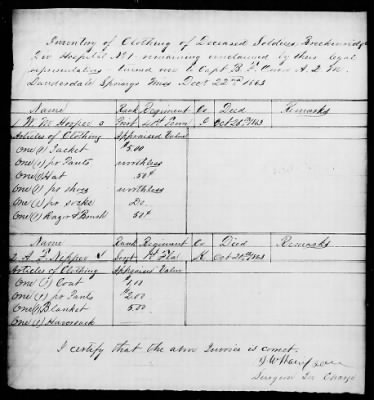 Inventory of Clothing of Deceased Soldiers Breckenridge
Div Hospital No 1 remaining unclaimed by their legal
representatives turned over to Capt B F A. Q M.
Lauderdale Springs Miss Dect 22nd 1863
Name Rank Regiment Co Died Remarks
1 W. M. Hooper Privt Tenn Oct 1863
Articles of Clothing Appraised Value
One (1) Jacket $5.00
One (1) pr Pants worthless
One (1) Hat 50¢
One (1) pr shoes worthless
One (1) pr socks 20
One (1) Razor & Brush 50¢
Name Rank Regiment Co Died Remarks
2 A. L. Nepper 1st Fla K Oct 1863
Articles of Clothing Appraised Value
One (1) Coat 1.00
One (1) pr Pants $2.00
One (1) Blanket 5.00
One (1) Haversack
I certify that the above Invoice is correct.
Surgeon In Charge